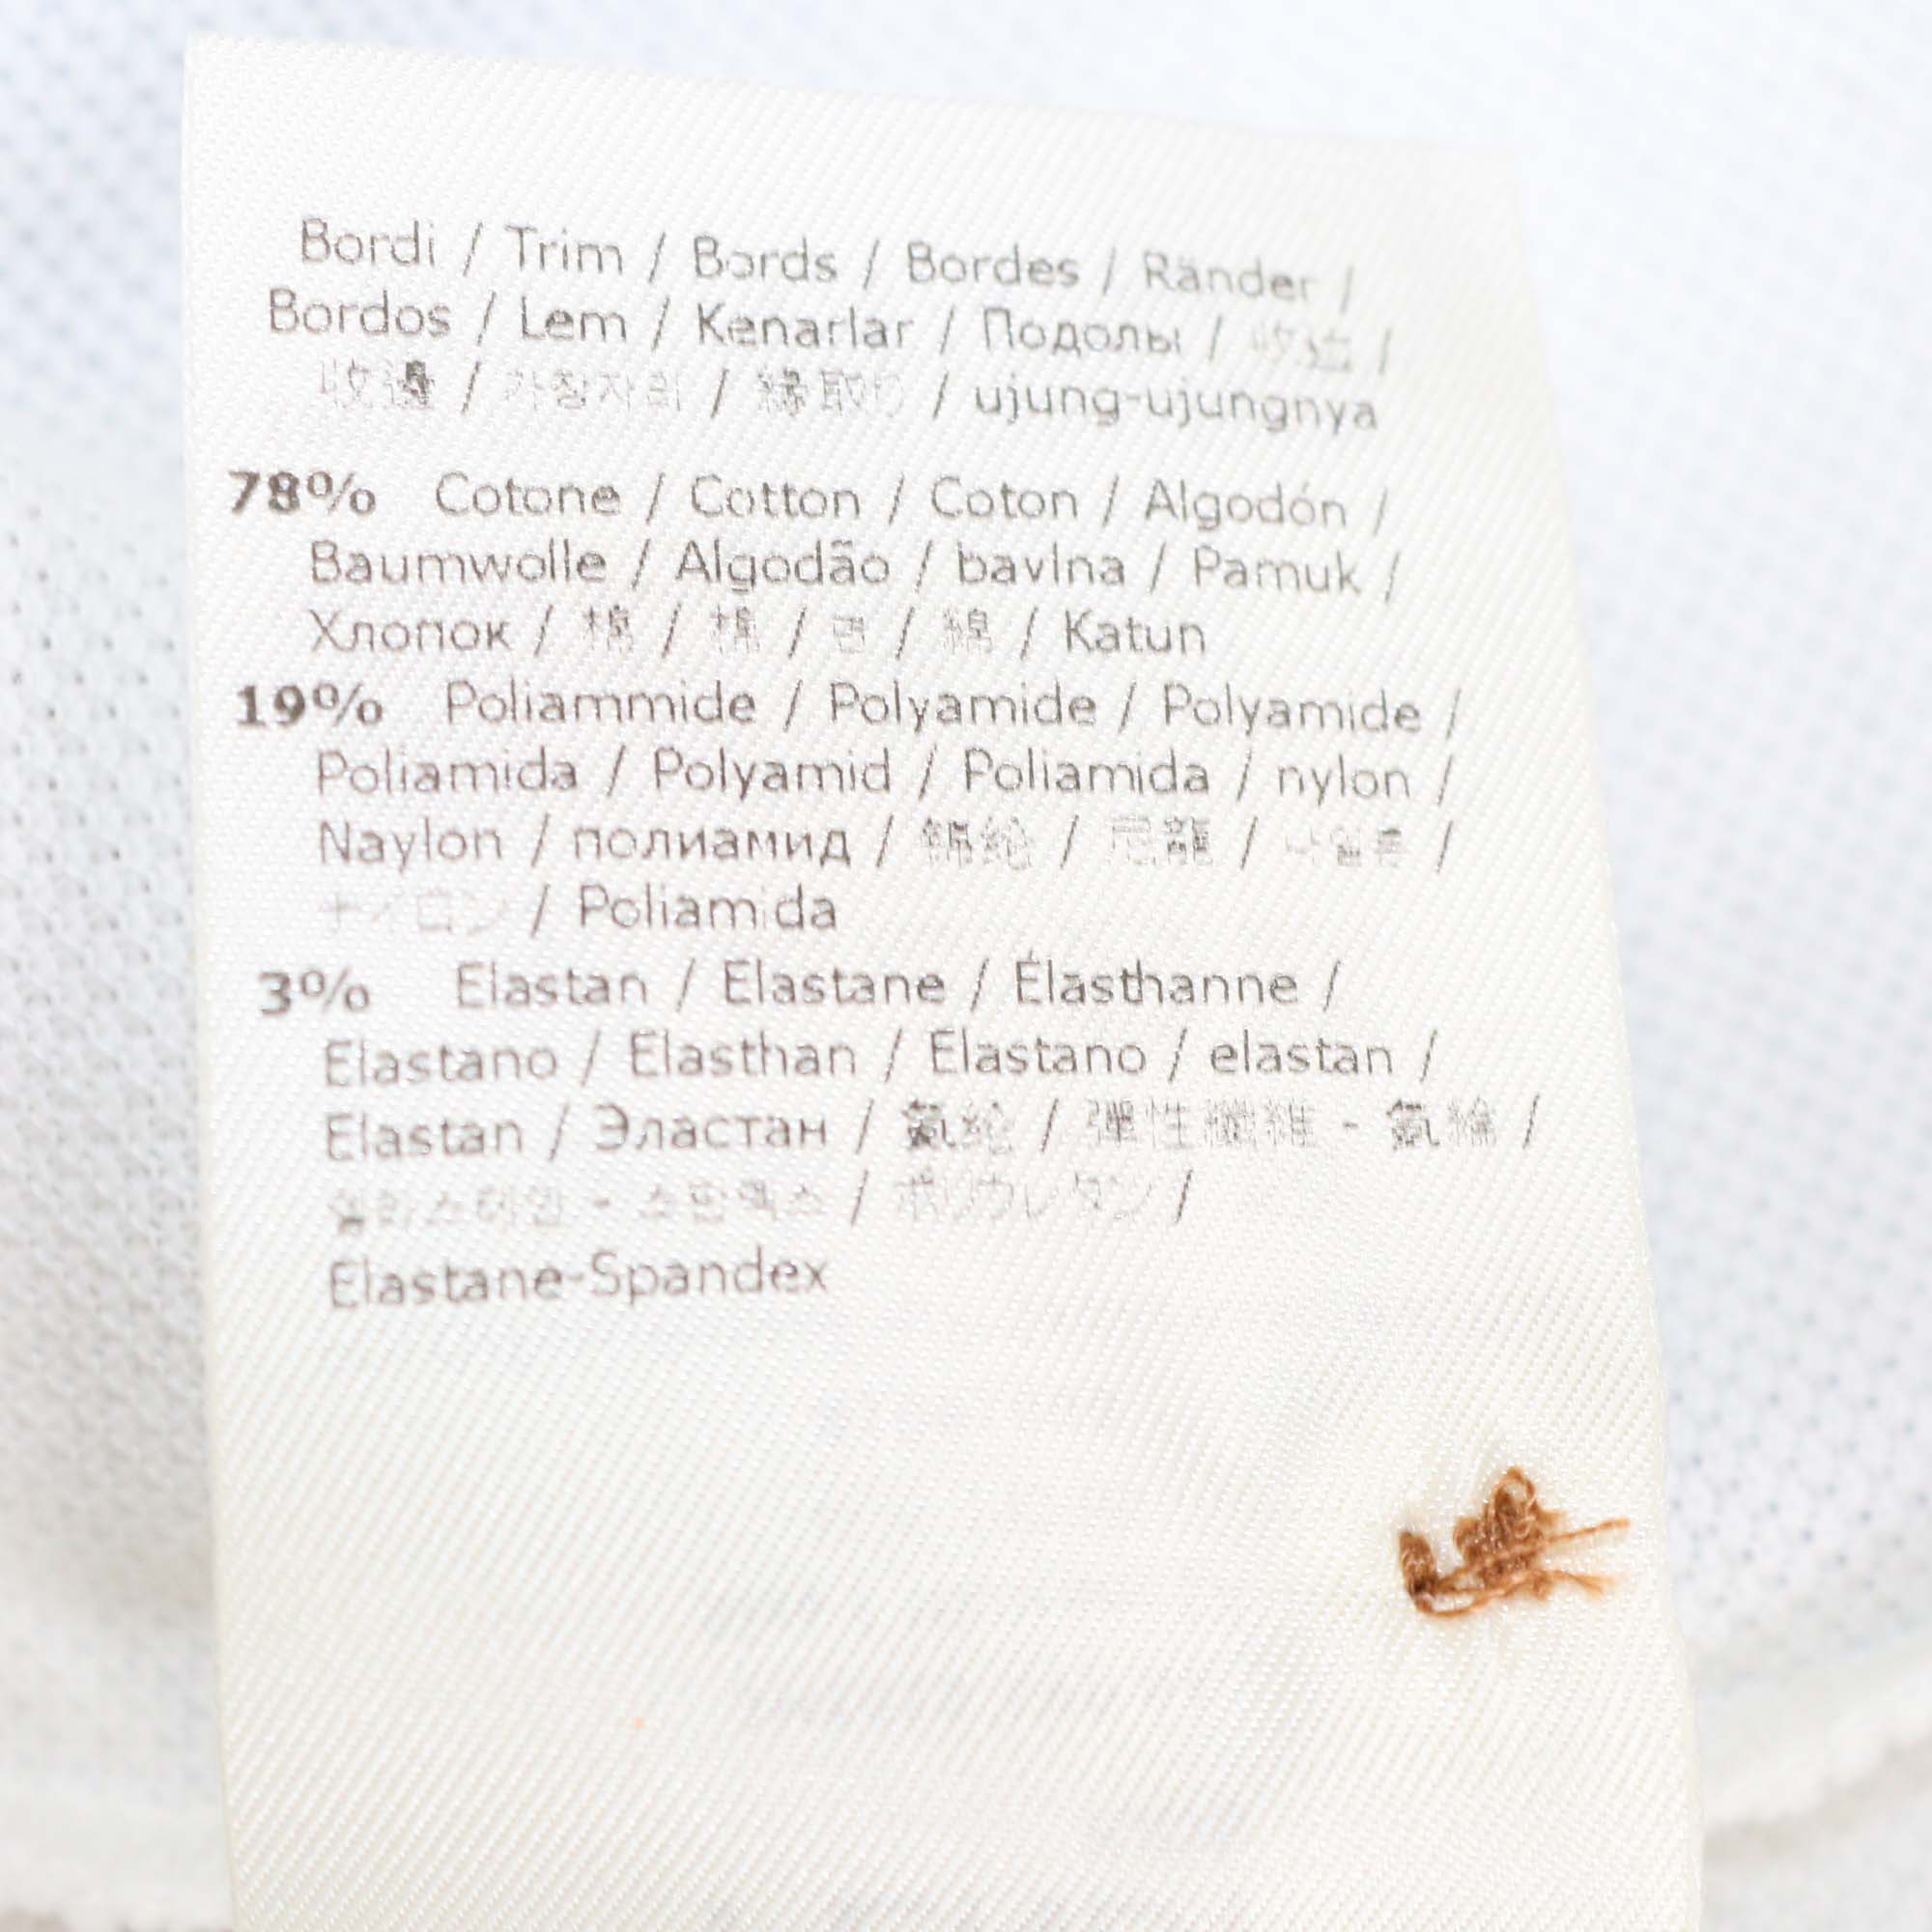 Bordi / Trim / Bords / Bordes / Ränder /
Bordos / Lem / Kenarlar / Подолы / 收边 /
收邊 / 가장자리 / 縁取り / ujung-ujungnya
78% Cotone / Cotton / Coton / Algodón /
Baumwolle / Algodão / bavlna / Pamuk /
Хлопок / 棉 / 棉 / 면 / 綿 / Katun
19% Poliammide / Polyamide / Polyamide /
Poliamida / Polyamid / Poliamida / nylon /
Naylon / полиамид / 锦纶 / 尼龍 / 나일론 /
ナイロン / Poliamida
3% Elastan / Elastane / Élasthanne /
Elastano / Elasthan / Elastano / elastan /
Elastan / Эластан / 氨纶 / 彈性纖維 - 氨綸 /
- 스판덱스 / ポリウレタン /
Elastane-Spandex